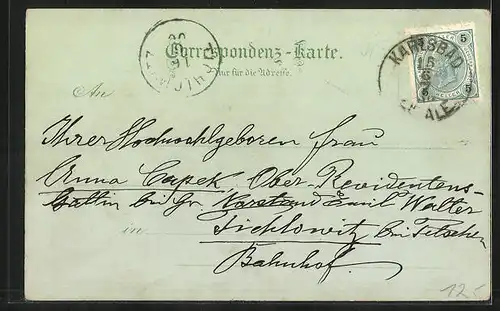 Correspondenz-Karte.
Nur für die Adresse.
KARLSBAD
15
6
5
5
5
An
Ihrer Hochwohlgeboren Frau
Anna Capek, Ober-Revidentens-
Gattin bei Hr. Vorstand Emil Walter
in Tichlowitz bei Tetschen
Bahnhof.
125